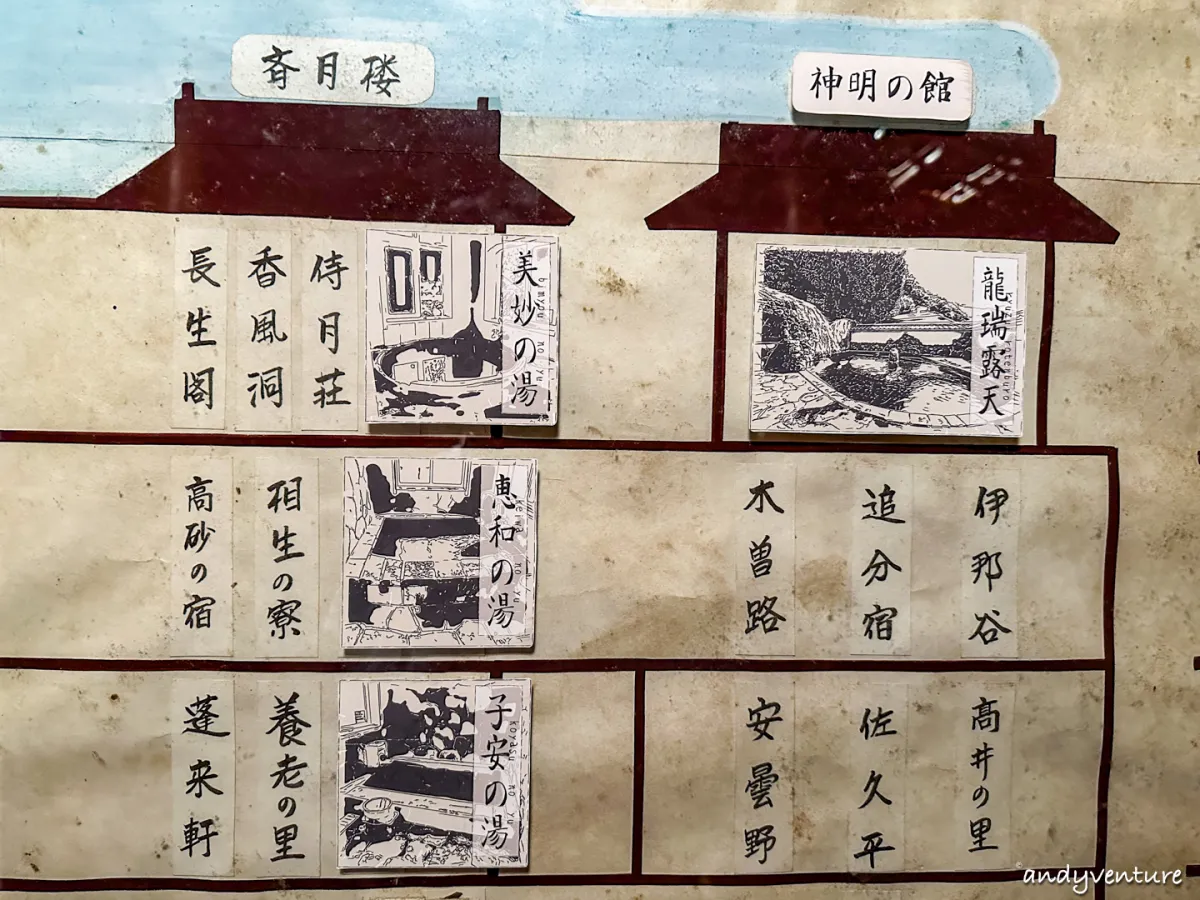 斉月楼
神明の館
龍瑞露天
美妙の湯
bimyou no yu
侍月荘
香風洞
長生閣
伊那谷
追分宿
木曽路
恵和の湯
keiwa no yu
相生の寮
高砂の宿
高井の里
佐久平
安曇野
子安の湯
koyasu no yu
養老の里
蓬来軒
andyventure